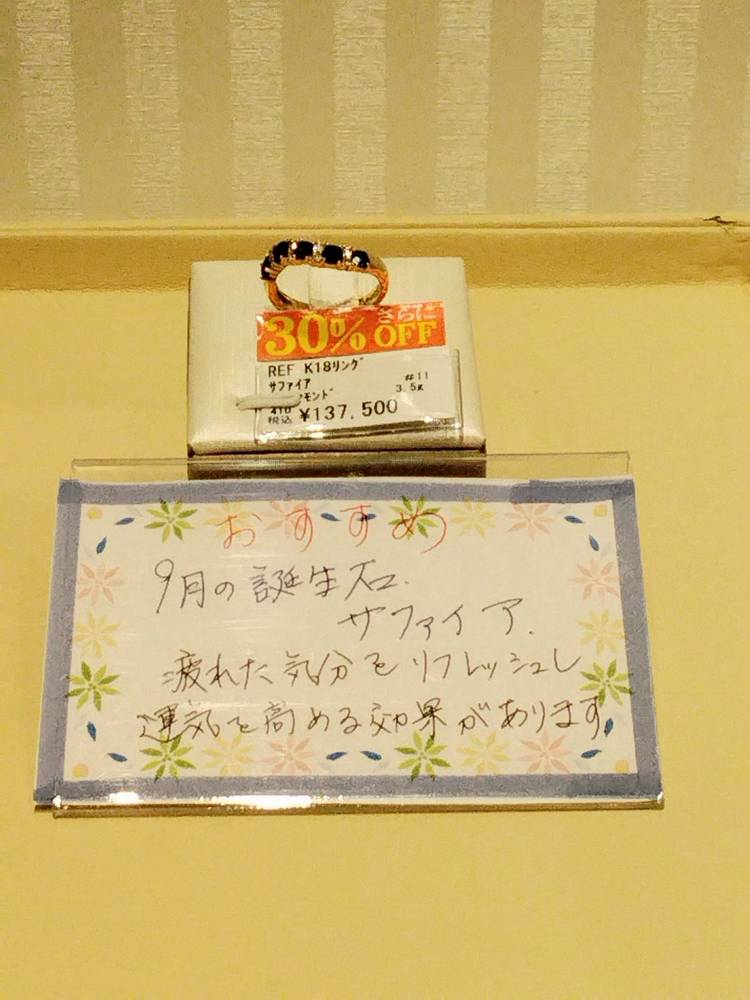 さらに
30% OFF
REF K18リング
サファイア #11
モンド 3.5g
税込 ¥137,500
おすすめ
9月の誕生石.
サファイア.
疲れた気分をリフレッシュし
運気を高める効果があります